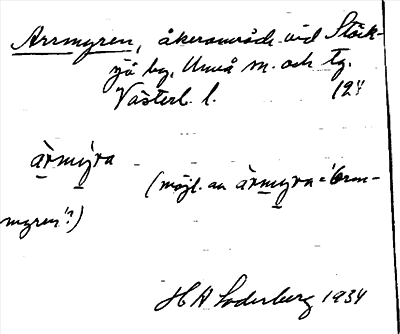 Arrmyren, åkerområde vid Stöck-
sjö by, Umeå sn. och tg.
Västerb. l. 124
àrmy̗ra
(möjl. av àrmyra = 'Orm-
myren'?)
H A Soderberg 1934